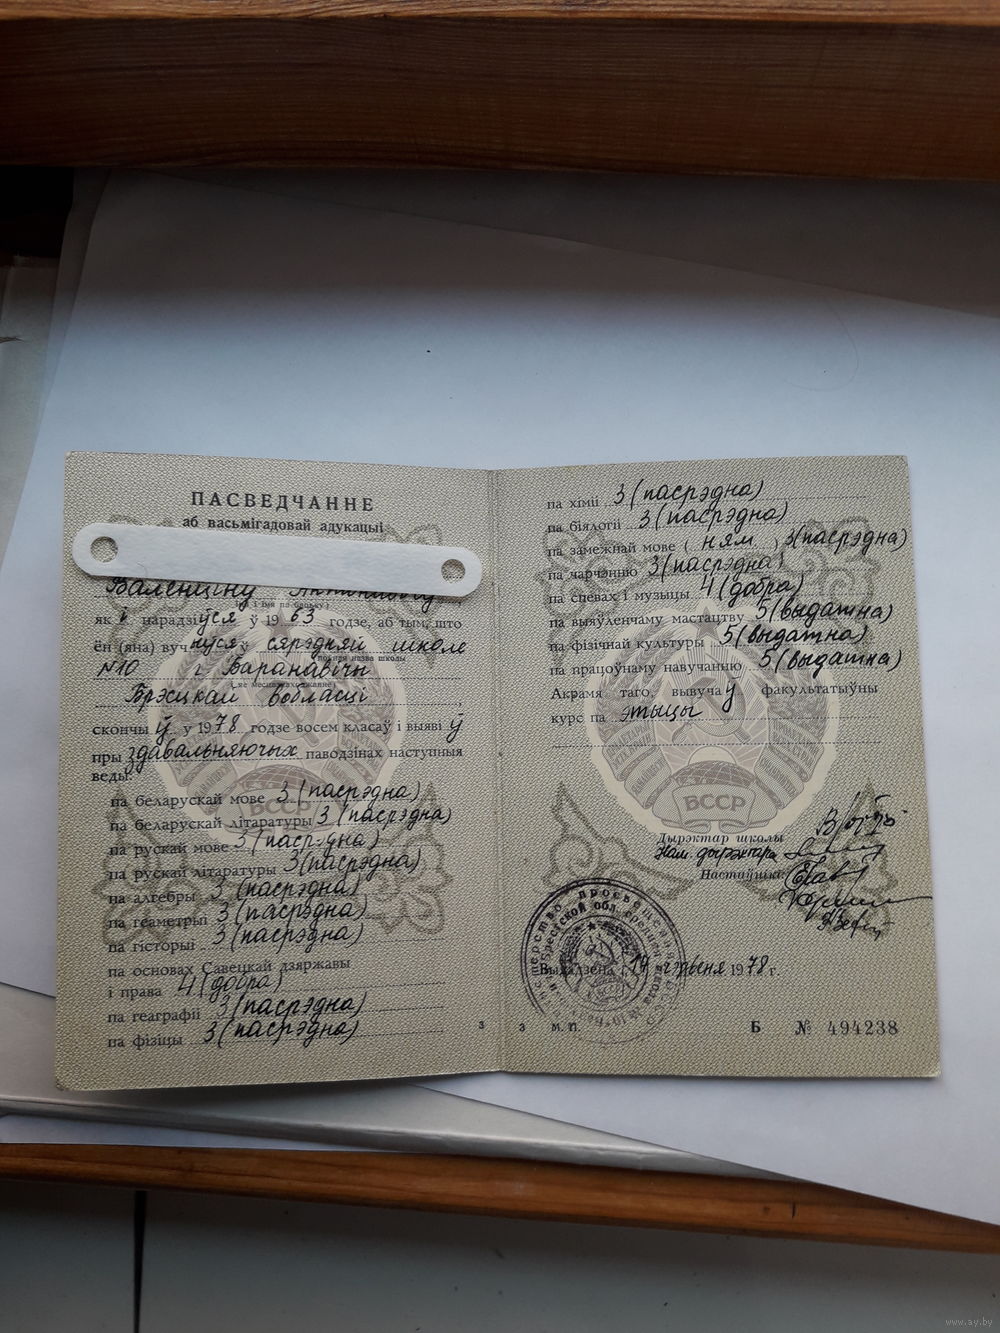 ПАСВЕДЧАННЕ
аб васьмігадовай адукацыі
Валенціну
як і нарадзіўся ў 1963 годзе, аб тым, што
ён (яна) вучыўся ў сярэдняй школе
поўная назва школы
№10 г. Баранавічы
яе месцазнаходжанне
Брэсцкай вобласці
скончыў у 1978 годзе восем класаў і выявіў
пры здавальняючых паводзінах наступныя
веды:
па беларускай мове 3 (пасрэдна)
па беларускай літаратуры 3 (пасрэдна)
па рускай мове 3 (пасрэдна)
па рускай літаратуры 3 (пасрэдна)
па алгебры 3 (пасрэдна)
па геаметрыі 3 (пасрэдна)
па гісторыі 3 (пасрэдна)
па основах Савецкай дзяржавы
і права 4 (добра)
па геаграфіі 3 (пасрэдна)
па фізіцы 3 (пасрэдна)
БССР
3
па хіміі 3 (пасрэдна)
па біялогіі 3 (пасрэдна)
па замежнай мове ( ням ) 3 (пасрэдна)
па чарчэнню 3 (пасрэдна)
па спевах і музыцы 4 (добра)
па выяўленчаму мастацтву 5 (выдатна)
па фізічнай культуры 5 (выдатна)
па працоўнаму навучанню 5 (выдатна)
Акрамя таго, вывучаў факультатыўны
курс па этыцы
БССР
Дырэктар школы
Нам. дырэктара
Настаўнікі
Выдадзена 14 чэрвеня 1978 г.
3 М. П. Б № 494238
www.ay.by